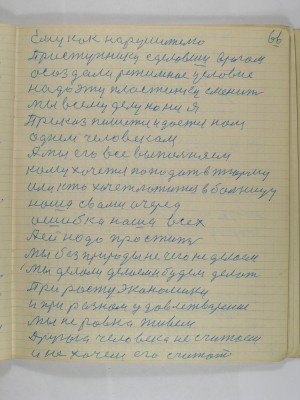 66
Ему как нарушителю
Преступнику сделовшу драгом
создали режимное условие
надо эту пластинку сменить
мы всему делу кони я
Приказ пишетца доется нам
одним человеком
А мы его все выполняем
кому хочетца поподать в тюрму
или кто хочет ложится в больницу
наша с вами очеред
ошибка наша всех
Аей надо простить
мы без природы не чего не делаем
мы делали делаем будем делат
При росту экономики
и при разном удовлетворение
мы не ровна живём
Друга человека не считаем
и не хочем его считат